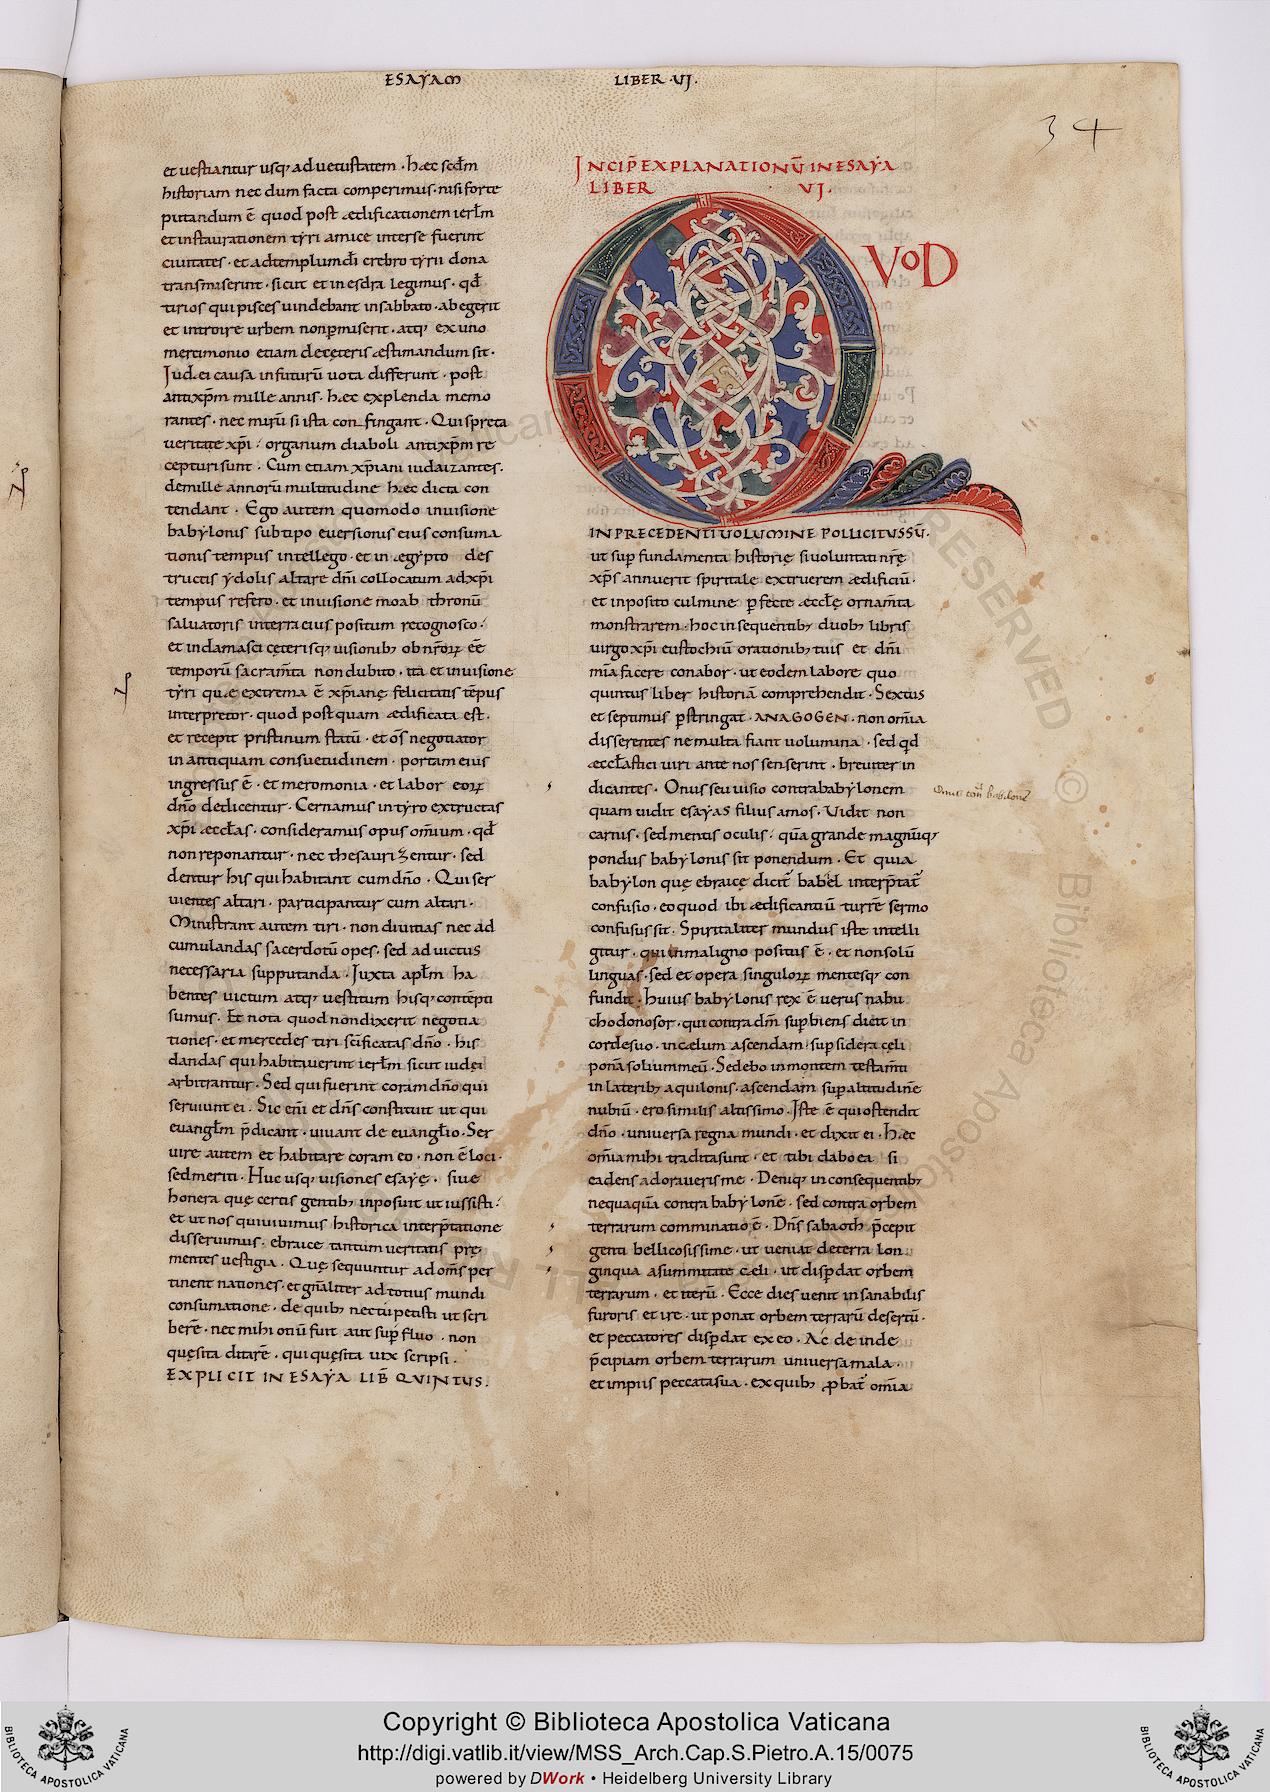 ESAYAM LIBER · VI.
34
et uestiantur usq; ad uetustatem · hæc sedm̄
historiam nec dum facta comperimus · nisi forte
putandum ē quod post ædificationem ierl̄m
et instaurationem tẏri amice inter se fuerint
ciuitates · et ad templum dī crebro tẏrii dona
transmiserint · sicut et in esdra legimus · qđ
tirios qui pisces uindebant in sabbato · abegerit
et introire urbem non p̄miserit · atq; ex uno
mertimonio etiam de cęteris æstimandum sit ·
Iudei causa in futurū uota differunt · post
antixpm̄ mille annis · hæc explenda memo
rantes · nec mirū si ista confingant · Qui spreta
ueritate xp̄i · organum diaboli antixpm̄ re
cepturi sunt · Cum etiam xp̄iani iudaizantes ·
de mille annorū multitudine hæc dicta con
tendant · Ego autem quomodo in uisione
babylonis sub tipo euersionis eius consuma
tionis tempus intellego · et in ægẏpto des
tructis ẏdolis altare dn̄i collocatum ad xp̄i
tempus refero · et in uisione moab thronū
saluatoris in terra eius positum recognosco ·
et in damasci cęterisq; uisionib; ob nr̄orum eē
temporū sacram̄ta non dubito · ita et in uisione
tẏri quæ extrema ē xp̄ianę felicitatis tēpus
interpretor · quod postquam ædificata est ·
et recepit pristinum statū · et oī̄s negotiator
in antiquam consuetudinem · portam eius
ingressus ē · et meromonia · et labor eorum
dn̄o dedicentur · Cernamus in tẏro extructas
xp̄i æccl̄as · consideramus opus om̄ium · qđ
non reponantur · nec thesaurizentur · sed
dentur his qui habitant cum dn̄o · Qui ser
uientes altari · participantur cum altari ·
Ministrant autem tiri · non diuitias nec ad
cumulandas sacerdotū opes · sed ad uictus
necessaria supputanda · Iuxta apl̄m ha
bentes uictum atq; uestitum hisq; contēpti
sumus · Et nota quod non dixerit negotia
tiones · et mercedes tiri sc̄ificatas dn̄o · his
dandas qui habitauerint ierl̄m sicut iudęi
arbitrantur · Sed qui fuerint coram dn̄o qui
seruiunt ei · Sic eni et dn̄s constituit ut qui
euangl̄m p̄dicant · uiuant de euangl̄io · Ser
uire autem et habitare coram eo · non ē loci ·
sed meriti · Huc usq; uisiones esaẏę · siue
honera quę certis gentib; inposuit ut iussisti ·
et ut nos quiuiuimus historica interp̄tatione
disseruimus · ebraice tantum ueritatis prę
mentes uestigia · Quę sequuntur ad om̄s per
tinent nationes · et gn̄aliter ad totius mundi
consumatione · de quib; nec tu petisti ut scri
berē · nec mihi otiū fuit aut sup̄fluo · non
quęsita ditarē · qui quęsita uix scripsi ·
EXPLICIT IN ESAẎA LIB̄ QVINTVS.
INCIP̄ EXPLANATIONŪ IN ESAẎA
LIBER VI.
QVOD
IN PRECEDENTI UOLUMINE POLLICITUS SŪ ·
ut sup̄ fundamenta historię si uoluntati nr̄ę
xp̄s annuerit spiritale extruerem ædificiū ·
et inposito culmine p̄fecte æccl̄ę ornam̄ta
monstrarem · hoc in sequentib; duob; libris
uirgo xp̄i eustochiū orationib; tuis et dn̄i
mīa facere conabor · ut eodem labore quo
quintus liber historiā comprehendit · Sextus
et septimus p̄stringat · ANAGOGEN · non om̄ia
disserentes ne multa fiant uolumina · sed qđ
æccl̄astici uiri ante nos senserint · breuiter in
dicantes · Onus seu uisio contra babylonem
quam uidit esaẏas filius amos · Vidit non
carnis · sed mentis oculis · quā grande magnūq;
pondus babylonis sit ponendum · Et quia
babylon quę ebraicę dicit̄ babel interp̄tat̄
confusio · eo quod ibi ædificantiū turrē sermo
confusus sit · Spiritaliter mundus iste intelli
gitur · qui in maligno positus ē · et non solū
linguas · sed et opera singulorum mentesq; con
fundit · Huius babylonis rex ē uerus nabu
chodonosor · qui contra dm̄ sup̄biens dicit in
corde suo · in cælum ascendam · sup̄ sidera cęli
ponā solium meū · Sedebo in montem testam̄ti
in laterib; aquilonis · ascendam sup̄ altitudinē
nubiū · ero similis altissimo · Iste ē qui ostendit
dn̄o · uniuersa regna mundi · et dixit ei · Hæc
om̄ia mihi tradita sunt · et tibi dabo ea si
cadens adoraueris me · Deniq; in consequentib;
nequaquā contra babylonē · sed contra orbem
terrarum comminatio ē · Dn̄s sabaoth p̄cepit
genti bellicosissime · ut ueniat de terra lon
ginqua a summitate cæli · ut disp̄dat orbem
terrarum · et iterū · Ecce dies uenit insanabilis
furoris et irę · ut ponat orbem terrarū desertū ·
et peccatores disp̄dat ex eo · Ac̄ deinde
p̄cipiam orbem terrarum uniuersa mala ·
et impiis peccata sua · ex quib; p̄bat̄ om̄ia
Copyright © Biblioteca Apostolica Vaticana
http://digi.vatlib.it/view/MSS_Arch.Cap.S.Pietro.A.15/0075
powered by DWork • Heidelberg University Library
BIBLIOTECA APOSTOLICA VATICANA
BIBLIOTECA APOSTOLICA VATICANA